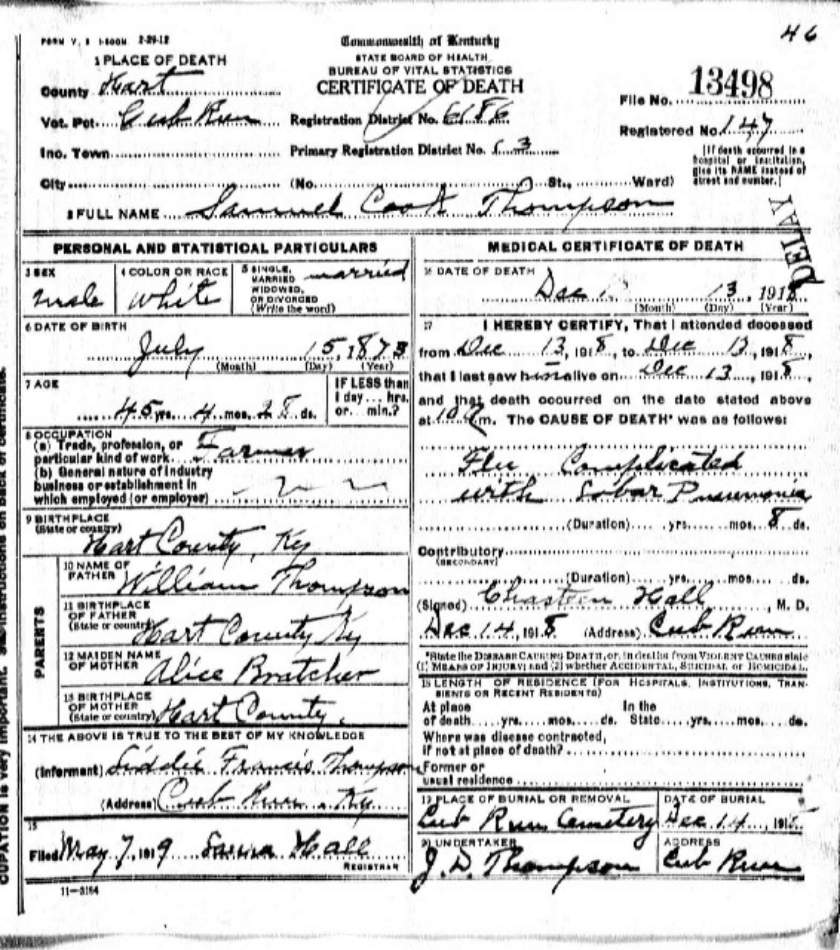 46
FORM V. S 1-500M 2-29-12
Commonwealth of Kentucky
STATE BOARD OF HEALTH
BUREAU OF VITAL STATISTICS
CERTIFICATE OF DEATH
1 PLACE OF DEATH
County Hart
Vot. Pct. Cub Run
Inc. Town
City
Registration District No. 6186
Primary Registration District No.
(No. St., Ward)
File No. 13498
Registered No. 147
[If death occurred in a
hospital or institution,
give its NAME instead of
street and number.]
2 FULL NAME Samuel Cook Thompson
DELAY
PERSONAL AND STATISTICAL PARTICULARS
3 SEX
male
4 COLOR OR RACE
White
5 SINGLE,
MARRIED
WIDOWED,
OR DIVORCED
(Write the word)
married
6 DATE OF BIRTH
July 15, 1873
(Month) (Day) (Year)
7 AGE
45 yrs. 4 mos. 28 ds.
IF LESS than
1 day... hrs.
or... min.?
8 OCCUPATION
(a) Trade, profession, or
particular kind of work Farmer
(b) General nature of industry
business or establishment in
which employed (or employer)
9 BIRTHPLACE
(State or country)
Hart County, Ky
PARENTS
10 NAME OF
FATHER William Thompson
11 BIRTHPLACE
OF FATHER
(State or country) Hart County Ky
12 MAIDEN NAME
OF MOTHER Alice Bratcher
13 BIRTHPLACE
OF MOTHER
(State or country) Hart County.
14 THE ABOVE IS TRUE TO THE BEST OF MY KNOWLEDGE
(Informant) Siddie Francis Thompson
(Address) Cub Run, Ky
15
Filed May 7, 1919 Hall
REGISTRAR
11-3184
MEDICAL CERTIFICATE OF DEATH
16 DATE OF DEATH
Dec 13, 1918
(Month) (Day) (Year)
17 I HEREBY CERTIFY, That I attended deceased
from Dec 13, 1918, to Dec 13, 1918,
that I last saw him alive on Dec 13, 1918,
and that death occurred on the date stated above
at 10 m. The CAUSE OF DEATH* was as follows:
Flu Complicated
with Lobar Pneumonia
(Duration) yrs. mos. 8 ds.
Contributory
(SECONDARY)
(Duration) yrs. mos. ds.
(Signed) Chasteen Hall, M. D.
Dec 14, 1918 (Address) Cub Run
*State the DISEASE CAUSING DEATH, or, in deaths from VIOLENT CAUSES state
(1) MEANS OF INJURY; and (2) whether ACCIDENTAL, SUICIDAL or HOMICIDAL.
18 LENGTH OF RESIDENCE (FOR HOSPITALS, INSTITUTIONS, TRAN-
SIENTS OR RECENT RESIDENTS)
At place In the
of death yrs. mos. ds. State yrs. mos. ds.
Where was disease contracted,
if not at place of death?
Former or
usual residence
19 PLACE OF BURIAL OR REMOVAL
Cub Run Cemetery
DATE OF BURIAL
Dec 14, 191
20 UNDERTAKER
J. D. Thompson
ADDRESS
Cub Run